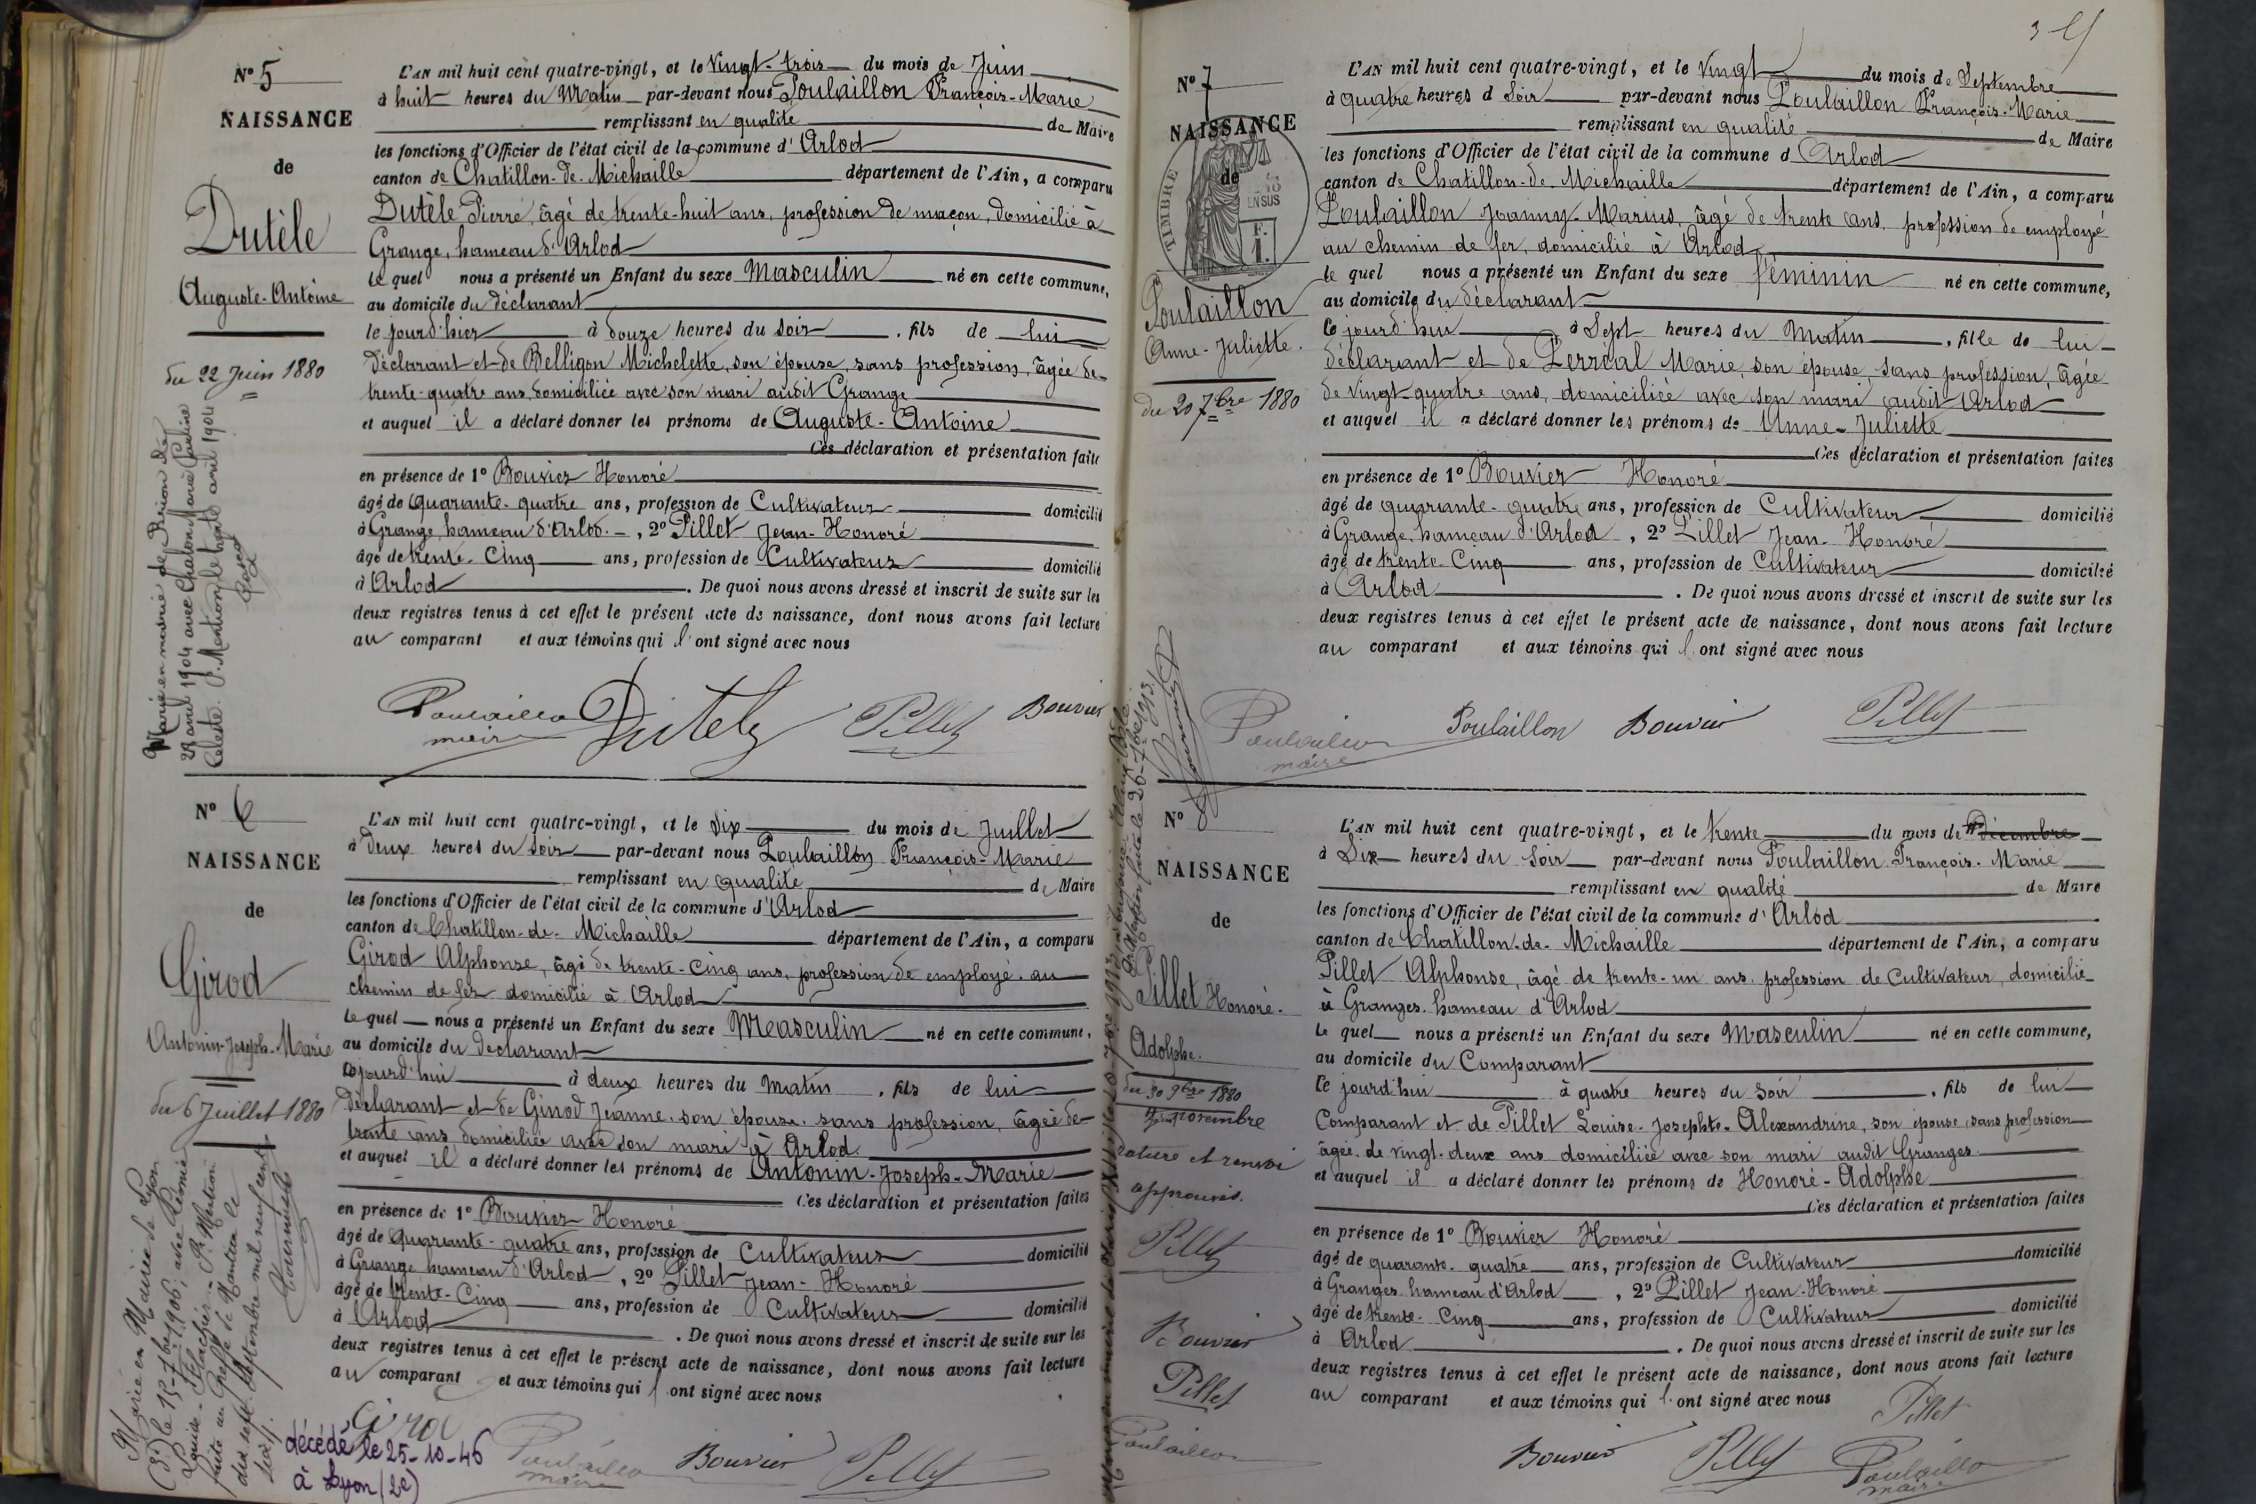 Nº 5
NAISSANCE
de
Dutèle
Auguste-Antoine
du 22 Juin 1880
L'AN mil huit cent quatre-vingt, et le Vingt-trois du mois de Juin
à huit heures du Matin par-devant nous Poulaillon François-Marie
remplissant en qualité de Maire
les fonctions d'Officier de l'état civil de la commune d'Arlod
canton de Chatillon-de-Michaille département de l'Ain, a comparu
Dutèle Pierre, âgé de trente-huit ans, profession de maçon, domicilié à
Grange, hameau d'Arlod
le quel nous a présenté un Enfant du sexe Masculin né en cette commune,
au domicile du déclarant
le jourd'hier à douze heures du soir, fils de lui
déclarant et de Belligon Michelette, son épouse, sans profession, âgée de
trente-quatre ans, domiciliée avec son mari audit Grange
et auquel il a déclaré donner les prénoms de Auguste-Antoine
Ces déclaration et présentation faite
en présence de 1º Bouvier Honoré
âgé de quarante-quatre ans, profession de Cultivateur domicilié
à Grange, hameau d'Arlod, 2º Pillet Jean-Honoré
âgé de trente-Cinq ans, profession de Cultivateur domicilié
à Arlod. De quoi nous avons dressé et inscrit de suite sur les
deux registres tenus à cet effet le présent acte de naissance, dont nous avons fait lecture
au comparant et aux témoins qui l'ont signé avec nous
Poulaillon Dutel Pillet Bouvier
maire
28 avril 1904 avec Chalon Marie Pauline
Céleste. P. Mention, le trente avril 1904
Nº 6
NAISSANCE
de
Girod
Antonin-Joseph-Marie
du 6 Juillet 1880
L'AN mil huit cent quatre-vingt, et le Six du mois de Juillet
à Deux heures du Soir par-devant nous Poulaillon François-Marie
remplissant en qualité de Maire
les fonctions d'Officier de l'état civil de la commune d'Arlod
canton de Chatillon-de-Michaille département de l'Ain, a comparu
Girod Alphonse, âgé de trente-cinq ans, profession de employé au
chemin de fer domicilié à Arlod
le quel nous a présenté un Enfant du sexe Measculin né en cette commune,
au domicile du déclarant
cejourd'hui à deux heures du Matin, fils de lui
déclarant et de Ginod Jeanne son épouse sans profession, âgée de
trente ans domiciliée avec son mari à Arlod
et auquel il a déclaré donner les prénoms de Antonin-Joseph-Marie
Ces déclaration et présentation faites
en présence de 1º Bouvier Honoré
âgé de quarante-quatre ans, profession de Cultivateur domicilié
à Grange hameau d'Arlod, 2º Pillet Jean-Honoré
âgé de trente-Cinq ans, profession de Cultivateur domicilié
à Arlod. De quoi nous avons dressé et inscrit de suite sur les
deux registres tenus à cet effet le présent acte de naissance, dont nous avons fait lecture
au comparant et aux témoins qui l'ont signé avec nous
Girod Poulaillon Bouvier Pillet
maire
Marié en Mairie de Lyon
(3e) le 15-7bre 1906, avec
P. Mention
dix sept Septembre mil neuf cent
décédé le 25-10-46
à Lyon (2e)
Nº 7
NAISSANCE
de
TIMBRE
Poulaillon
Anne-Juliette.
du 20 7bre 1880
L'AN mil huit cent quatre-vingt, et le Vingt du mois de Septembre
à quatre heures d Soir par-devant nous Poulaillon François-Marie
remplissant en qualité de Maire
les fonctions d'Officier de l'état civil de la commune d Arlod
canton de Chatillon-de-Michaille département de l'Ain, a comparu
Poulaillon Joanny-Marius, âgé de trente ans, profession de employé
au chemin de fer, domicilié à Arlod
le quel nous a présenté un Enfant du sexe féminin né en cette commune,
au domicile du déclarant
Ce jourd'hui à Sept heures du Matin, fille de lui
déclarant et de Perréal Marie, son épouse, sans profession, âgée
de Vingt-quatre ans, domiciliée avec son mari audit Arlod
et auquel il a déclaré donner les prénoms de Anne-Juliette
Ces déclaration et présentation faites
en présence de 1º Bouvier Honoré
âgé de quarante-quatre ans, profession de Cultivateur domicilié
à Grange, hameau d'Arlod, 2º Pillet Jean-Honoré
âgé de trente-Cinq ans, profession de Cultivateur domicilié
à Arlod. De quoi nous avons dressé et inscrit de suite sur les
deux registres tenus à cet effet le présent acte de naissance, dont nous avons fait lecture
au comparant et aux témoins qui l'ont signé avec nous
Poulaillon Poulaillon Bouvier Pillet
maire
Nº 8
NAISSANCE
de
Pillet Honoré-
Adolphe.
du 30 9bre 1880
novembre
rature et renvoi
approuvés.
Pillet
Bouvier
Pillet
Poulaillon
L'AN mil huit cent quatre-vingt, et le trente du mois de décembre
à Six heures du Soir par-devant nous Poulaillon François-Marie
remplissant en qualité de Maire
les fonctions d'Officier de l'état civil de la commune d'Arlod
canton de Chatillon-de-Michaille département de l'Ain, a comparu
Pillet Alphonse, âgé de trente-un ans, profession de Cultivateur, domicilié
à Granges, hameau d'Arlod
le quel nous a présenté un Enfant du sexe Masculin né en cette commune,
au domicile du Comparant
Ce jourd'hui à quatre heures du Soir, fils de lui
Comparant et de Pillet Louise-Josephte-Alexandrine, son épouse sans profession
âgée de vingt-deux ans domiciliée avec son mari audit Granges
et auquel il a déclaré donner les prénoms de Honoré-Adolphe
Ces déclaration et présentation faites
en présence de 1º Bouvier Honoré
âgé de quarante-quatre ans, profession de Cultivateur domicilié
à Granges hameau d'Arlod, 2º Pillet Jean-Honoré
âgé de trente-Cinq ans, profession de Cultivateur domicilié
à Arlod. De quoi nous avons dressé et inscrit de suite sur les
deux registres tenus à cet effet le présent acte de naissance, dont nous avons fait lecture
au comparant et aux témoins qui l'ont signé avec nous
Pillet
Bouvier Pillet Poulaillon
maire